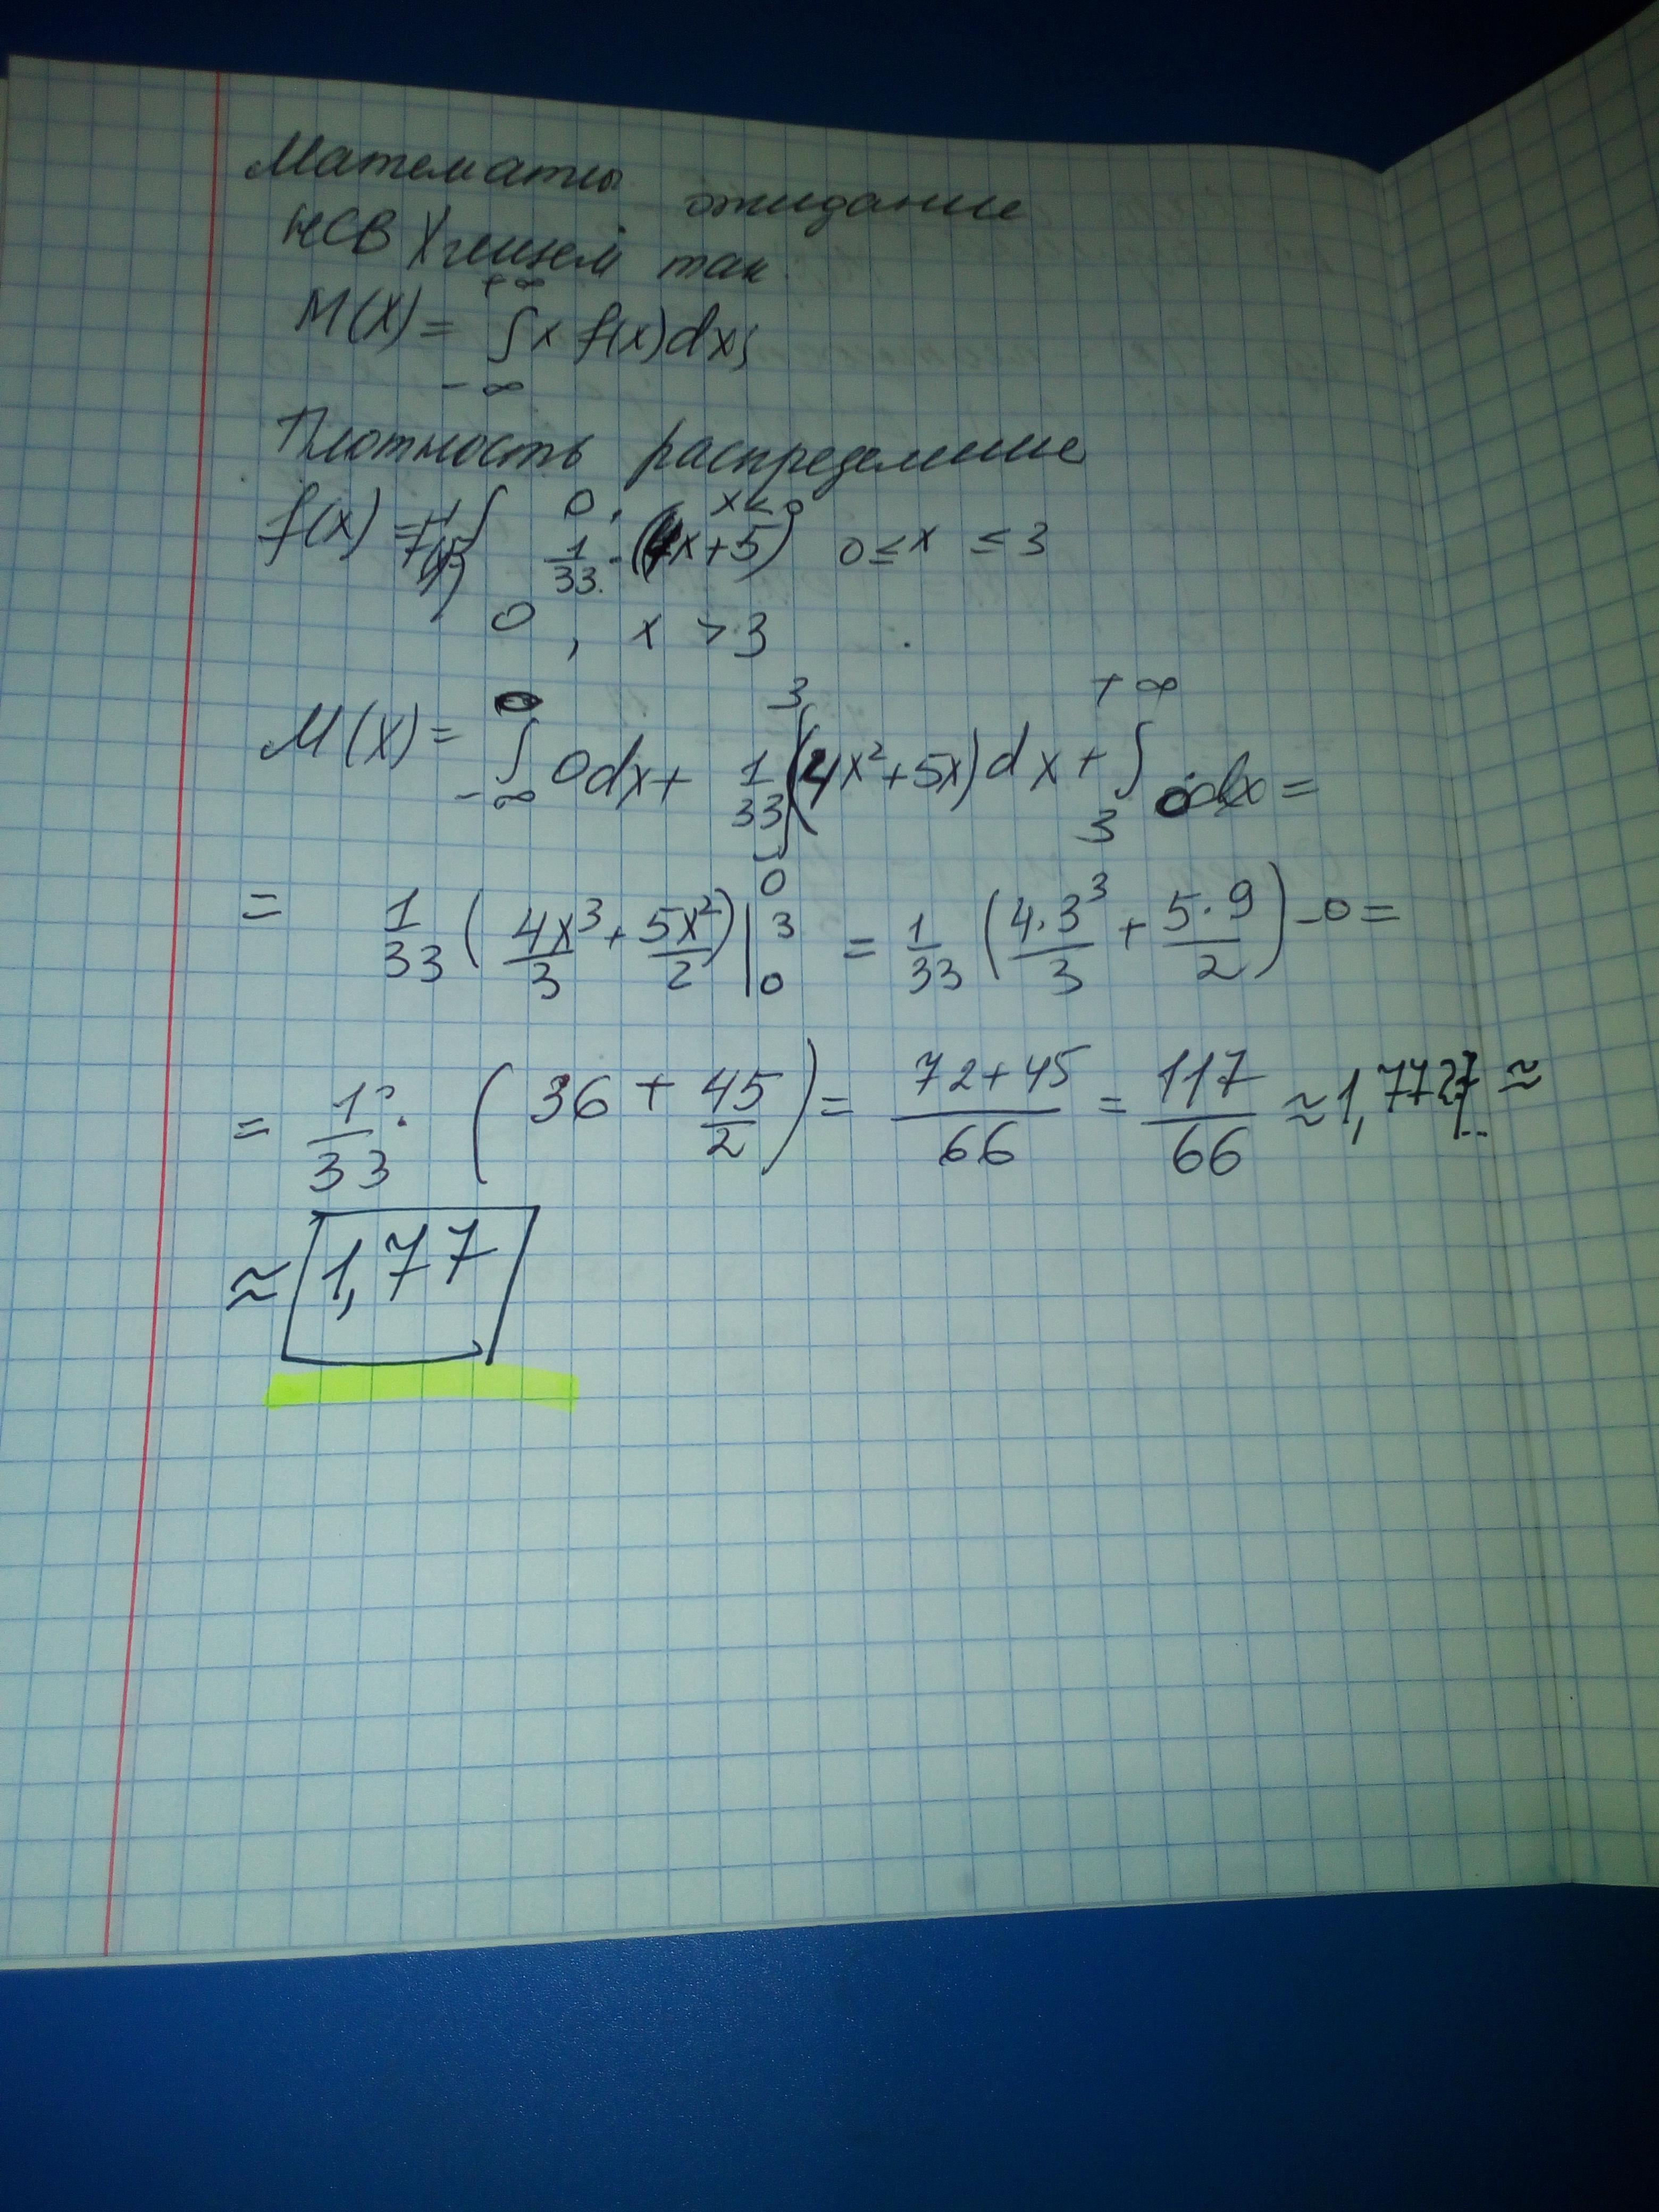 Математич ожидание
НСВ X ищем так
M(X) = ∫ x f(x)dx;
+∞
-∞
Плотность распределение
f(x) = { 0, x<0
1/33 · (4x+5) 0≤x ≤3
0, x > 3
M(X) = ∫_{-∞}^{0} 0dx + 1/33 ∫_{0}^{3} (4x²+5x)dx + ∫_{3}^{+∞} 0·dx =
= 1/33 ( 4x³/3 + 5x²/2 ) |_{0}^{3} = 1/33 ( 4·3³/3 + 5·9/2 ) - 0 =
= 1/33 · ( 36 + 45/2 ) = 72+45/66 = 117/66 ≈ 1,7727... ≈
≈ 1,77